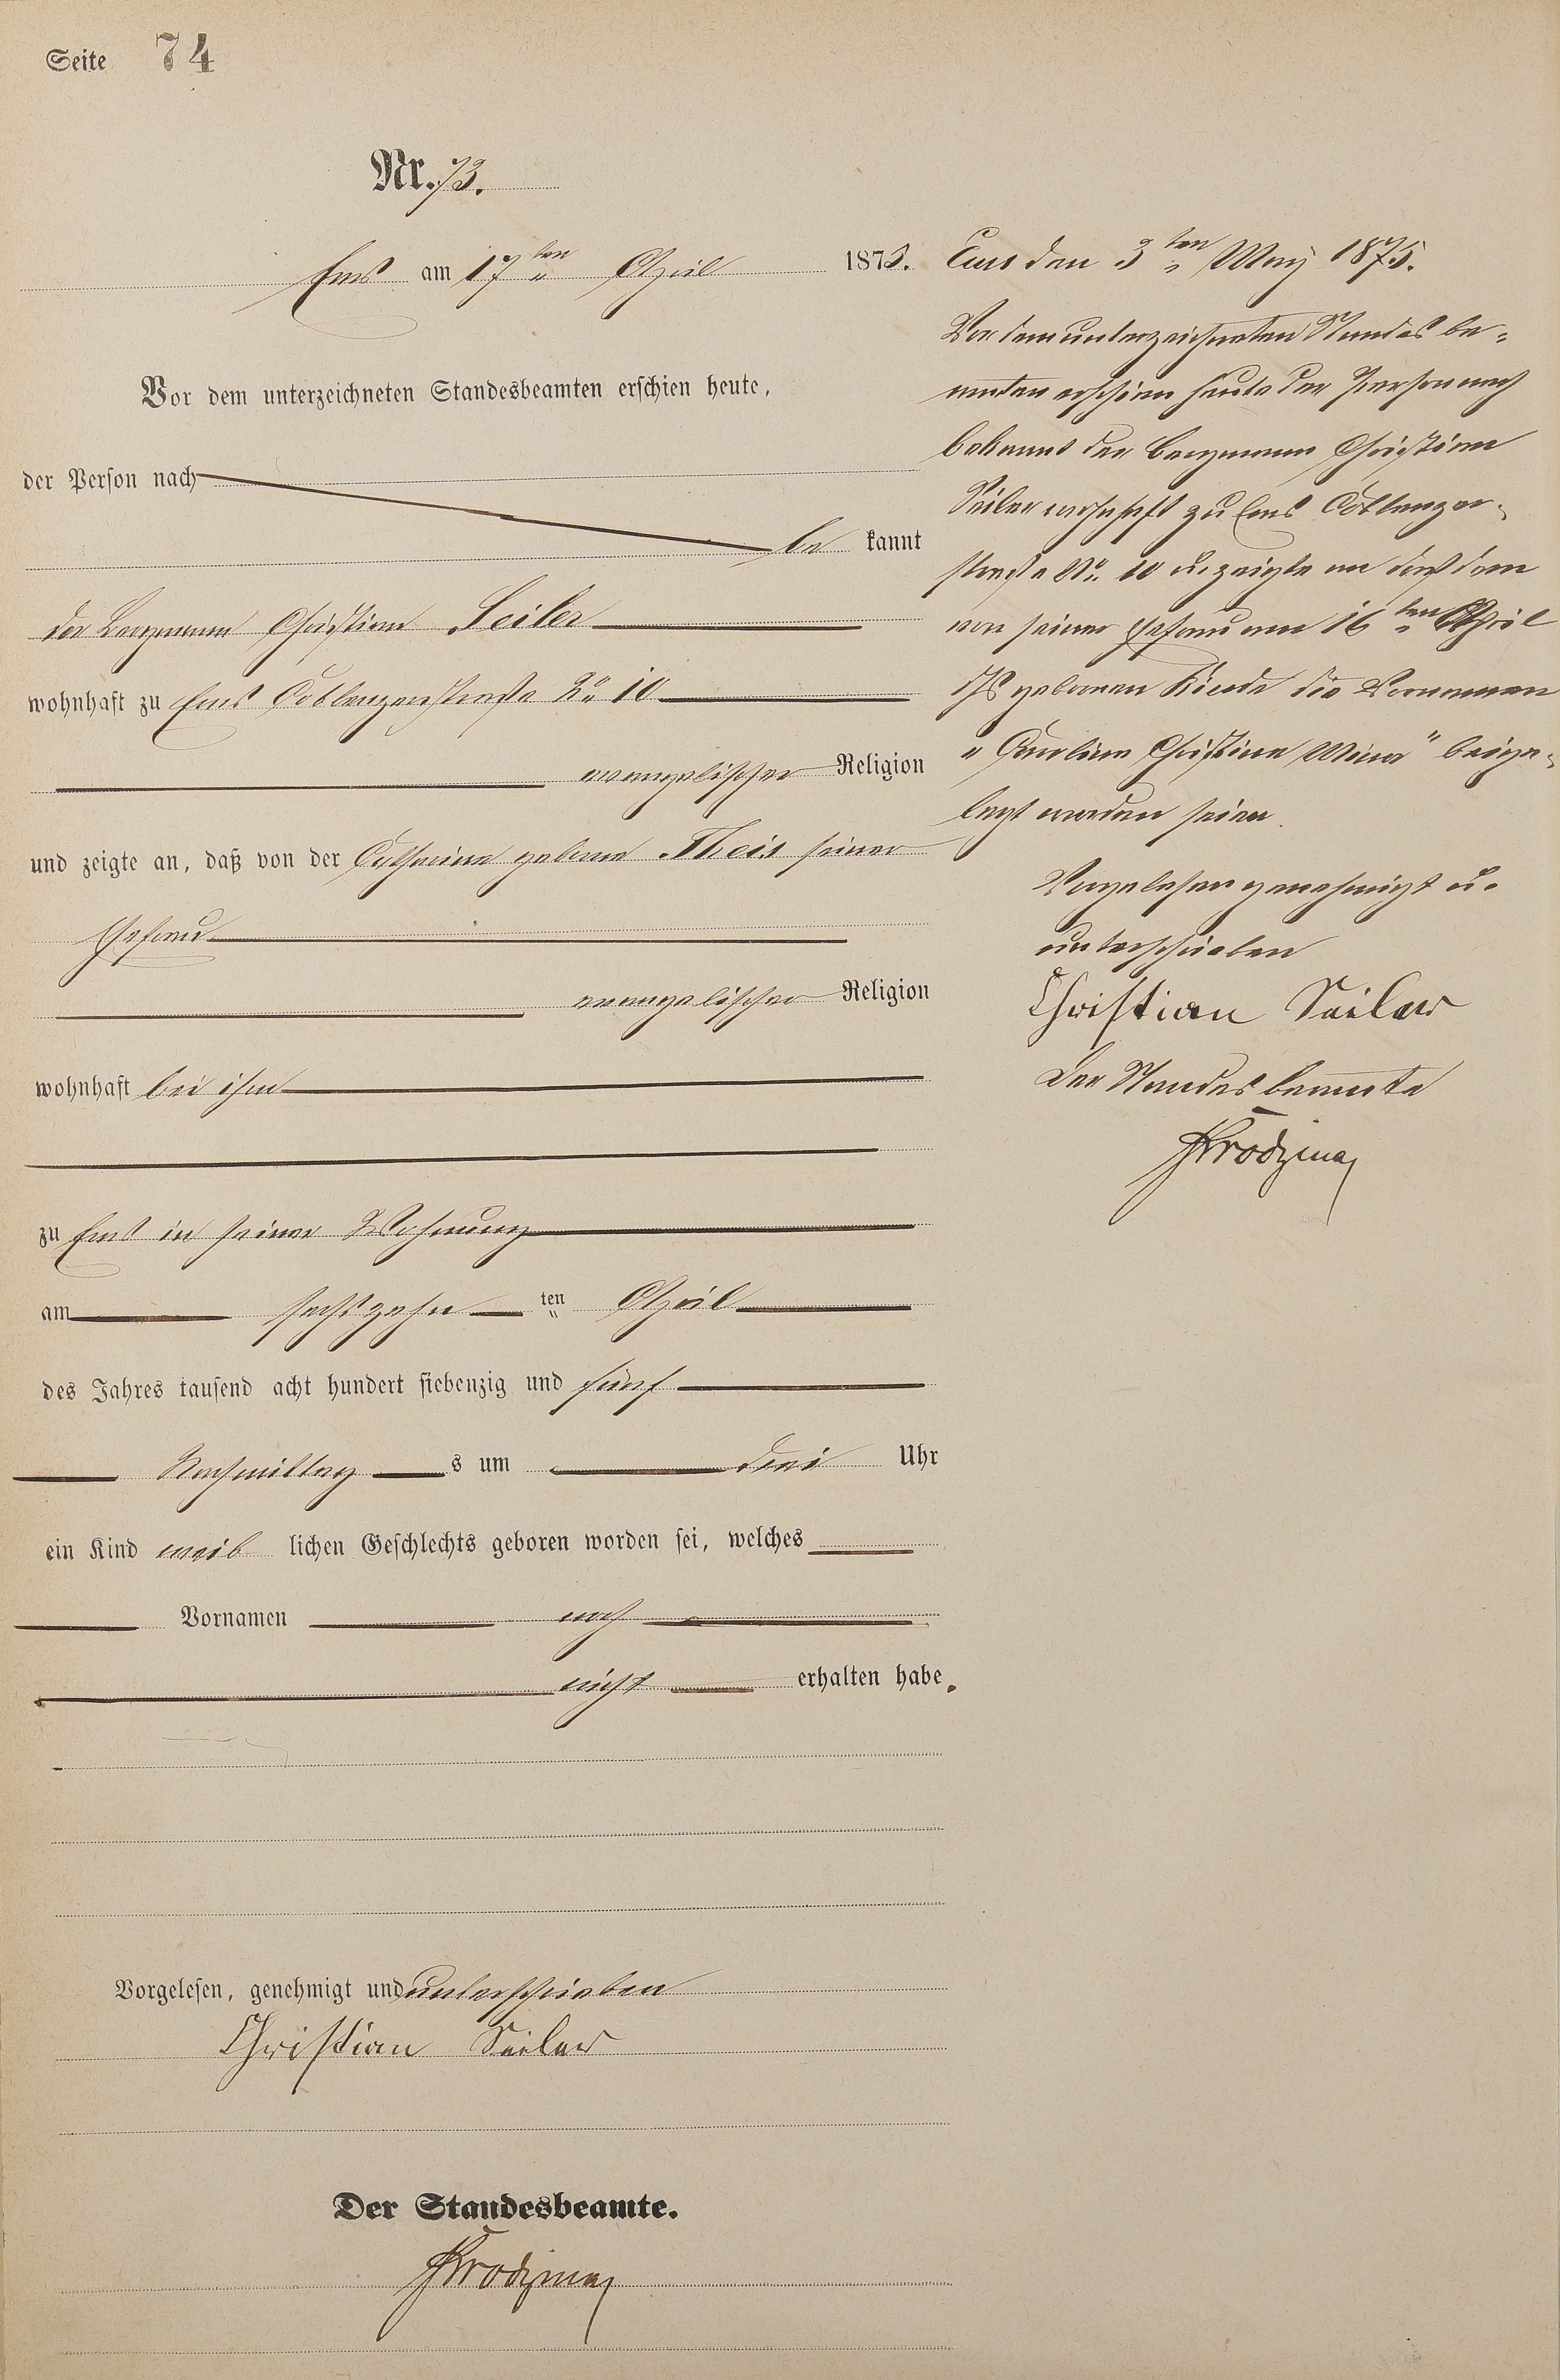 Seite 74
Nr. 73.
Ems am 17ten April 1875.
Vor dem unterzeichneten Standesbeamten erschien heute,
der Person nach
be kannt
der Bergmann Christian Seiler
wohnhaft zu Ems Coblenzerstraße No 10
evangelischer Religion
und zeigte an, daß von der Catharine geborne Theis seiner
Ehefrau
evangelischer Religion
wohnhaft bei ihm
zu Ems in seiner Wohnung
am sechszehn ten April
des Jahres tausend acht hundert siebenzig und fünf
Nachmittag s um drei Uhr
ein Kind weib lichen Geschlechts geboren worden sei, welches
Vornamen noch
nicht erhalten habe.
Vorgelesen, genehmigt und unterschrieben
Christian Seiler
Der Standesbeamte.
Ems den 3ten May 1875.
Vor dem unterzeichneten Standes be-
amten erschien heute der Person nach
bekannt der Bergmann Christian
Seiler wohnhaft zu Ems Coblenzer-
straße No. 10 u. zeigte an daß dem
von seiner Ehefrau am 16ten April
ds gebornen Kinde die Vornamen
"Caroline Christine Mina" beige-
legt worden seien.
Vorgelesen genehmigt u.
unterschrieben
Christian Seiler
Der Standesbeamte